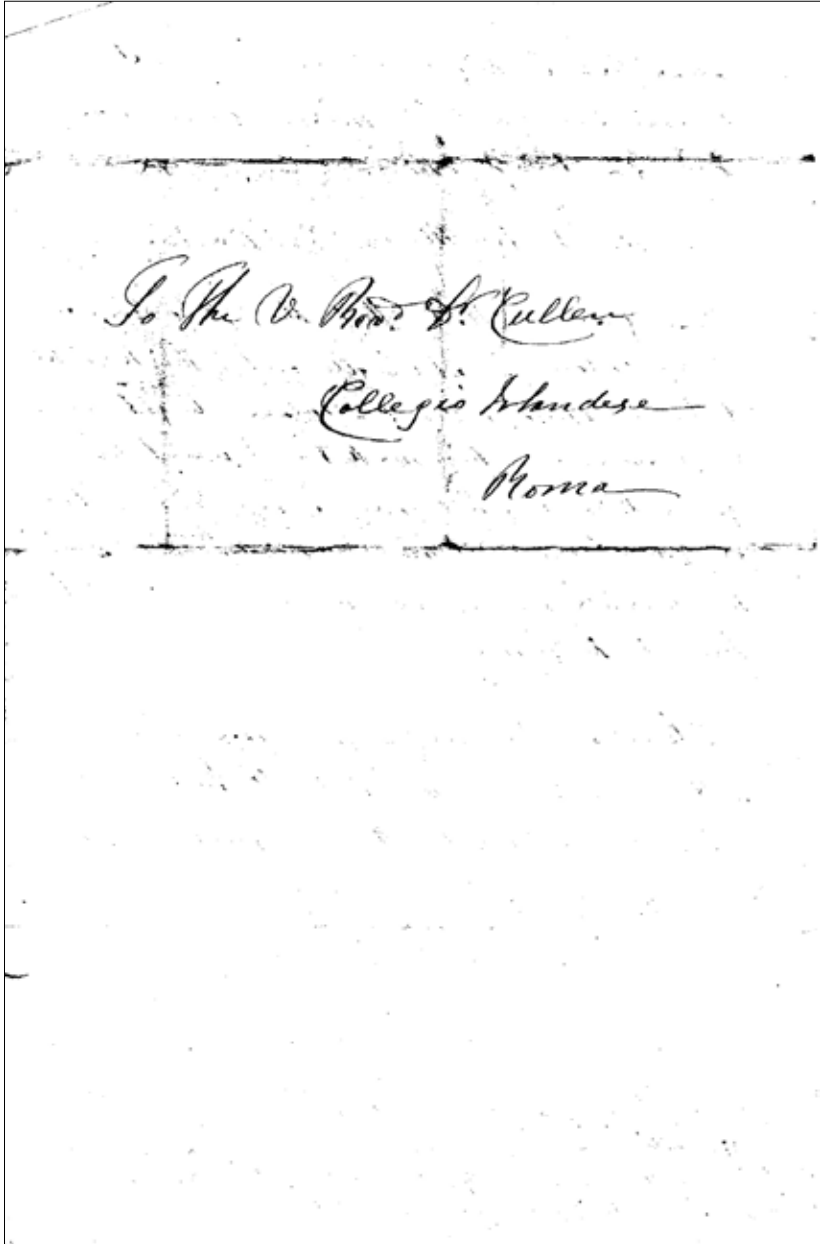 To The V. Revd. Dr. Cullen
Collegio Irlandese
Roma